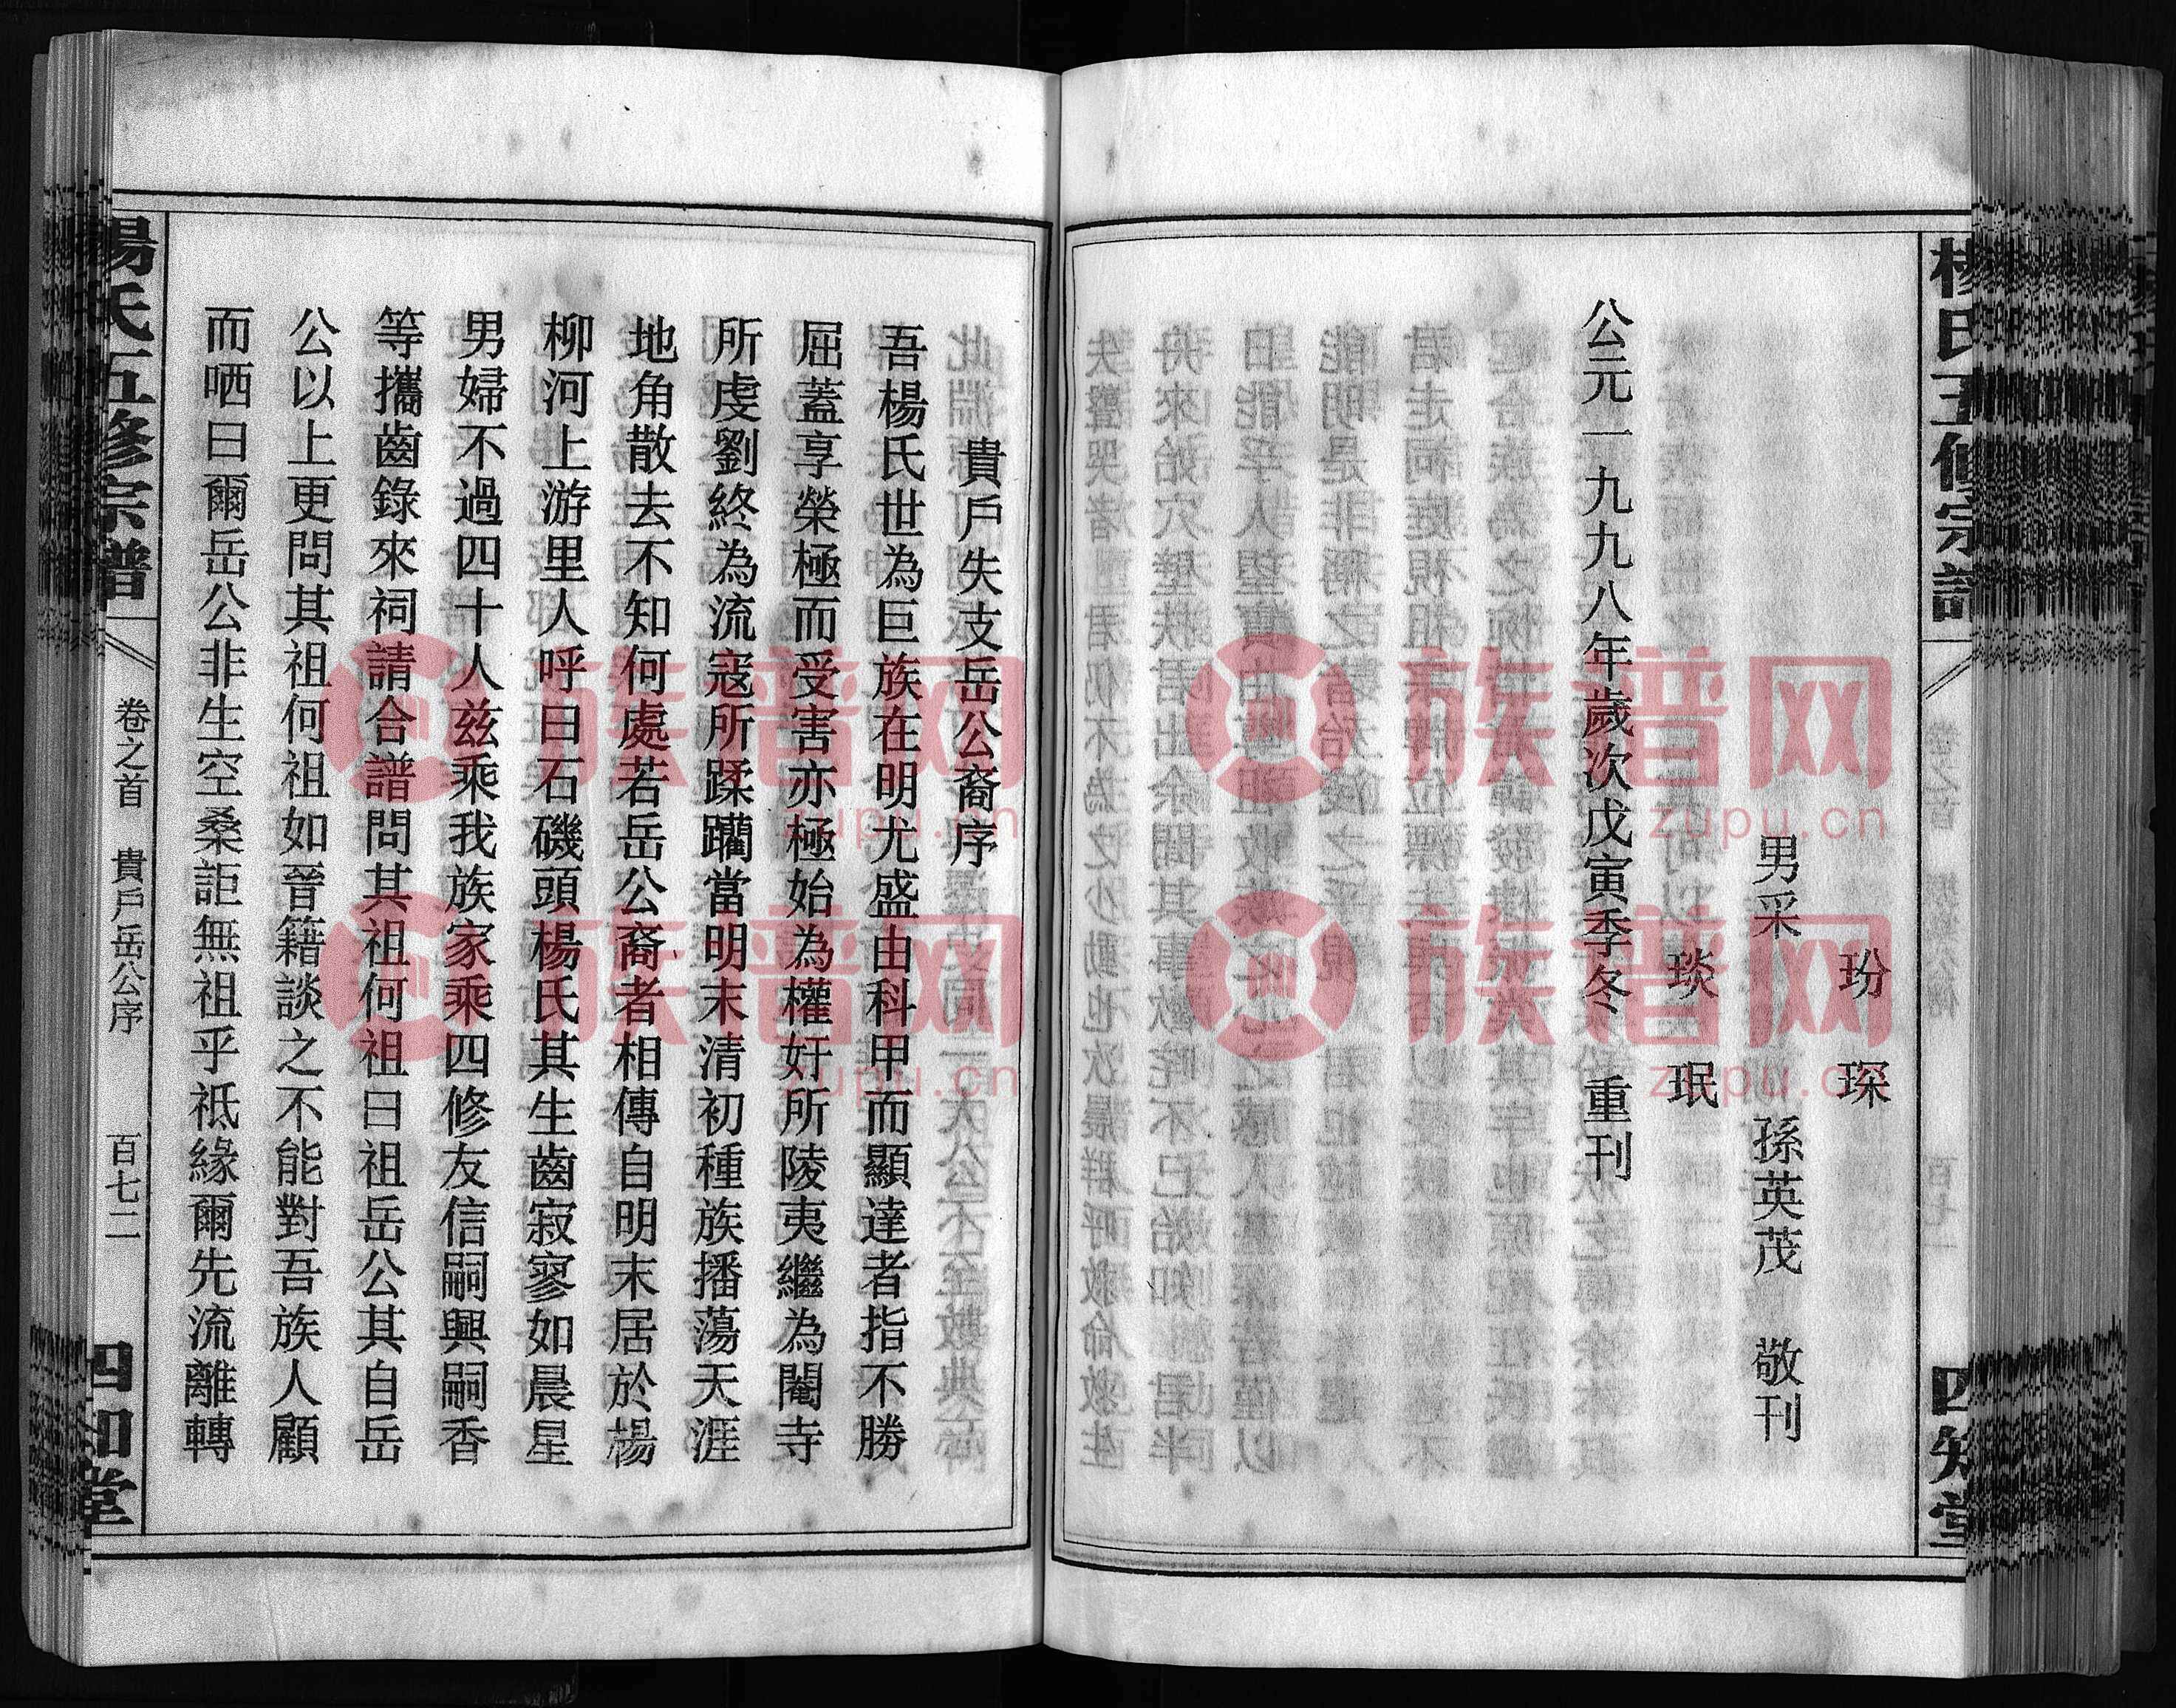 楊氏五修宗譜
四知堂
玢　琛
男采　孫英茂　敬刊
琰　珉
公元一九九八年歲次戊寅季冬　重刊
貴戶失支岳公裔序
吾楊氏世為巨族在明尤盛由科甲而顯達者指不勝
屈蓋享榮極而受害亦極始為權奸所陵夷繼為閹寺
所虔劉終為流寇所蹂躪當明末清初種族播蕩天涯
地角散去不知何處若岳公裔者相傳自明末居於楊
柳河上游里人呼曰石磯頭楊氏其生齒寂寥如晨星
男婦不過四十人茲乘我族家乘四修友信嗣興嗣香
等攜齒錄來祠請合譜問其祖何祖曰祖岳公其自岳
公以上更問其祖何祖如晉籍談之不能對吾族人顧
而哂曰爾岳公非生空桑詎無祖乎祇緣爾先流離轉
楊氏五修宗譜
卷之首　貴戶岳公序
百七二
四知堂
族譜网
zupu.cn
族譜网
zupu.cn
族譜网
zupu.cn
族譜网
zupu.cn